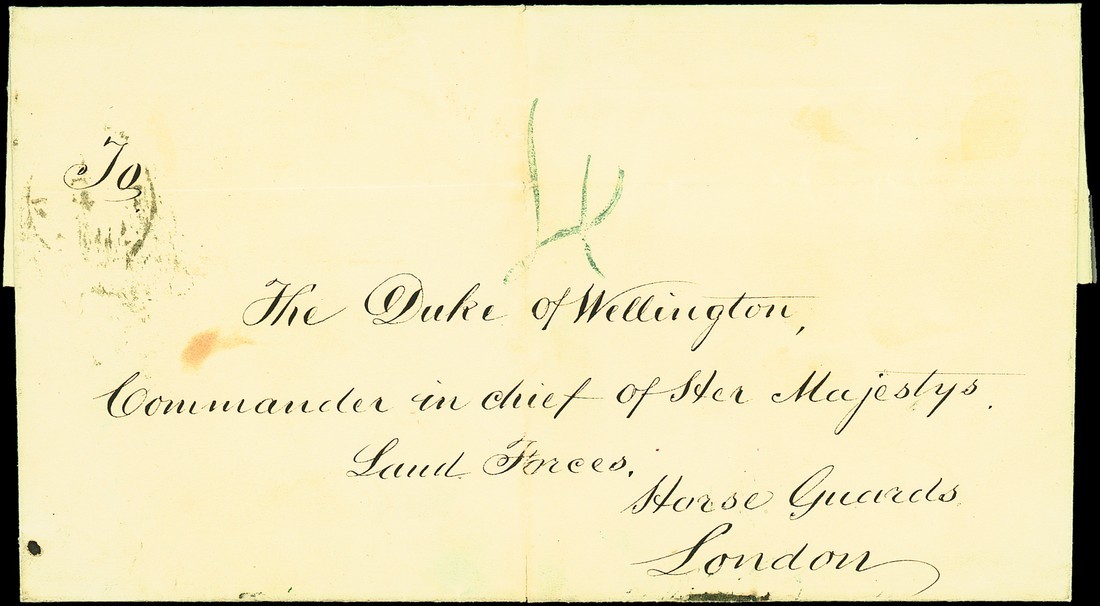 4
To
The Duke of Wellington,
Commander in chief of Her Majestys.
Land Forces.
Horse Guards
London